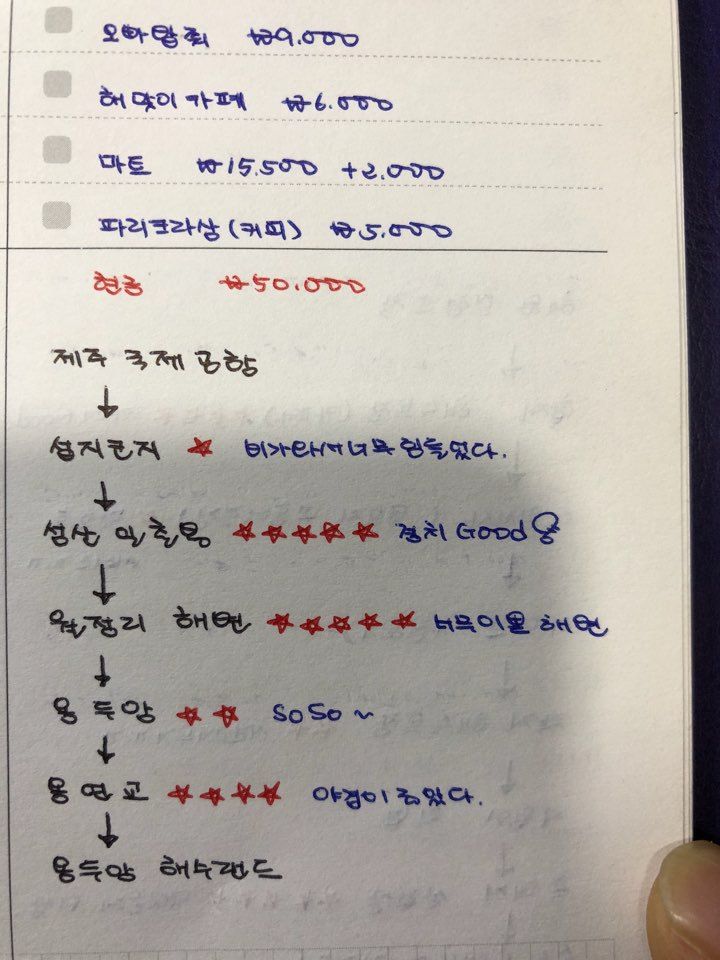 오빠밥집 ₩9.000
해맞이카페 ₩6.000
마트 ₩15.500 +2.000
파리크라상(커피) ₩5.000
현금 ₩50.000
제주 국제 공항
↓
섭지코지 ☆ 비가와서 너무 힘들었다.
↓
성산 일출봉 ☆☆☆☆☆ 경치 GOOD
↓
월정리 해변 ☆☆☆☆☆ 너무이쁜 해변
↓
용두암 ☆☆ SOSO ~
↓
용연교 ☆☆☆☆ 야경이 좋았다.
↓
용두암 해수랜드